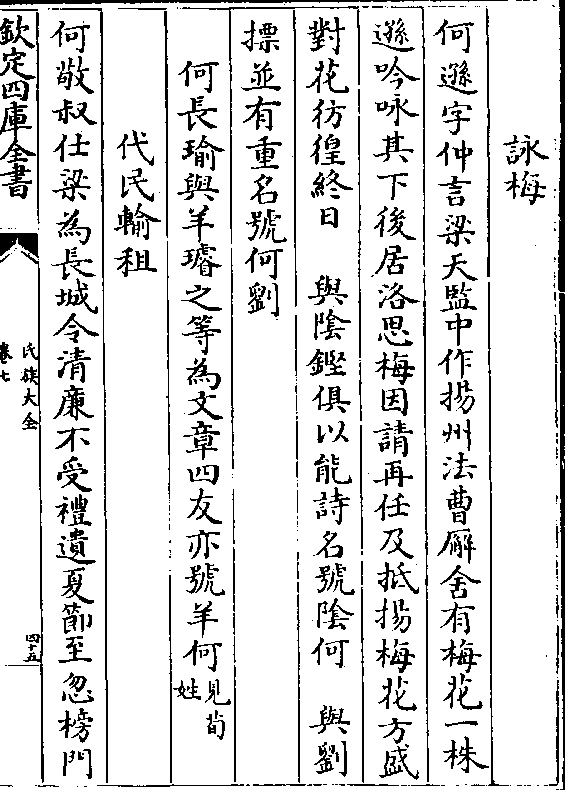 詠梅
何遜字仲言梁天監中作揚州法曹廨舍有梅花一株
遜吟咏其下後居洛思梅因請再任及抵揚梅花方盛
對花彷徨終日　與陰鏗俱以能詩名號陰何　與劉
摽並有重名號何劉
何長瑜與羊璿之等為文章四友亦號羊何見荀姓
代民輸租
何敬叔仕梁為長城令清廉不受禮遺夏節至忽榜門
欽定四庫全書
氏族大全
卷七
四十五